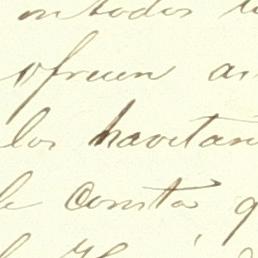 en todos
ofrecen
los havitan
le consta q